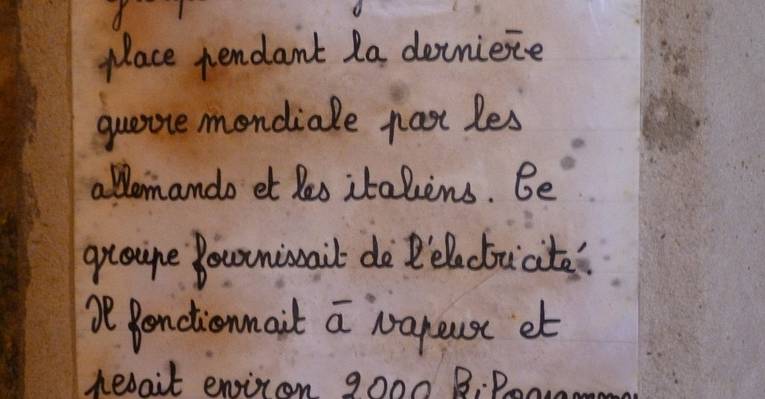 place pendant la dernière
guerre mondiale par les
allemands et les italiens. Ce
groupe fournissait de l'électricité.
Il fonctionnait à vapeur et
pesait environ 2000 kilogrammes